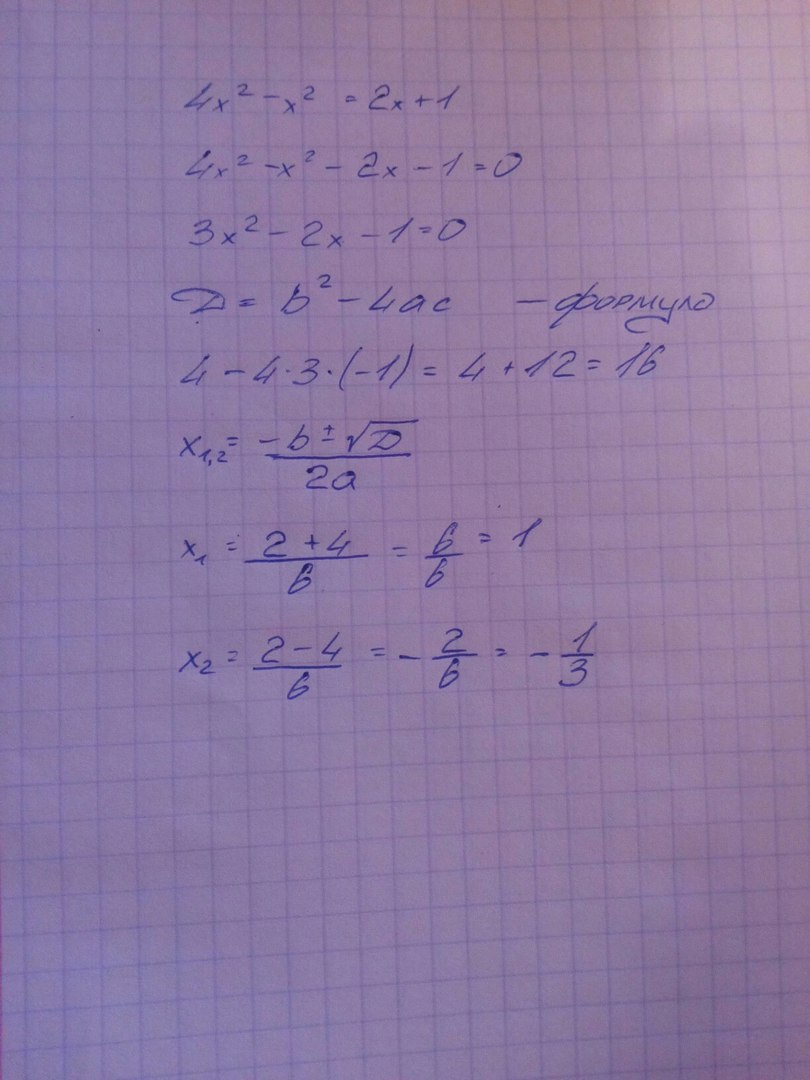 4x² - x² = 2x + 1
4x² - x² - 2x - 1 = 0
3x² - 2x - 1 = 0
D = b² - 4ac - формула
4 - 4·3·(-1) = 4 + 12 = 16
x₁,₂ = (-b ± √D)/(2a)
x₁ = (2 + 4)/6 = 6/6 = 1
x₂ = (2 - 4)/6 = -2/6 = -1/3